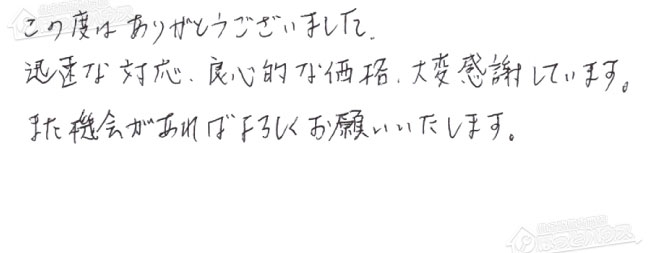 この度はありがとうございました.
迅速な対応、良心的な価格、大変感謝しています。
また機会があればよろしくお願いいたします。